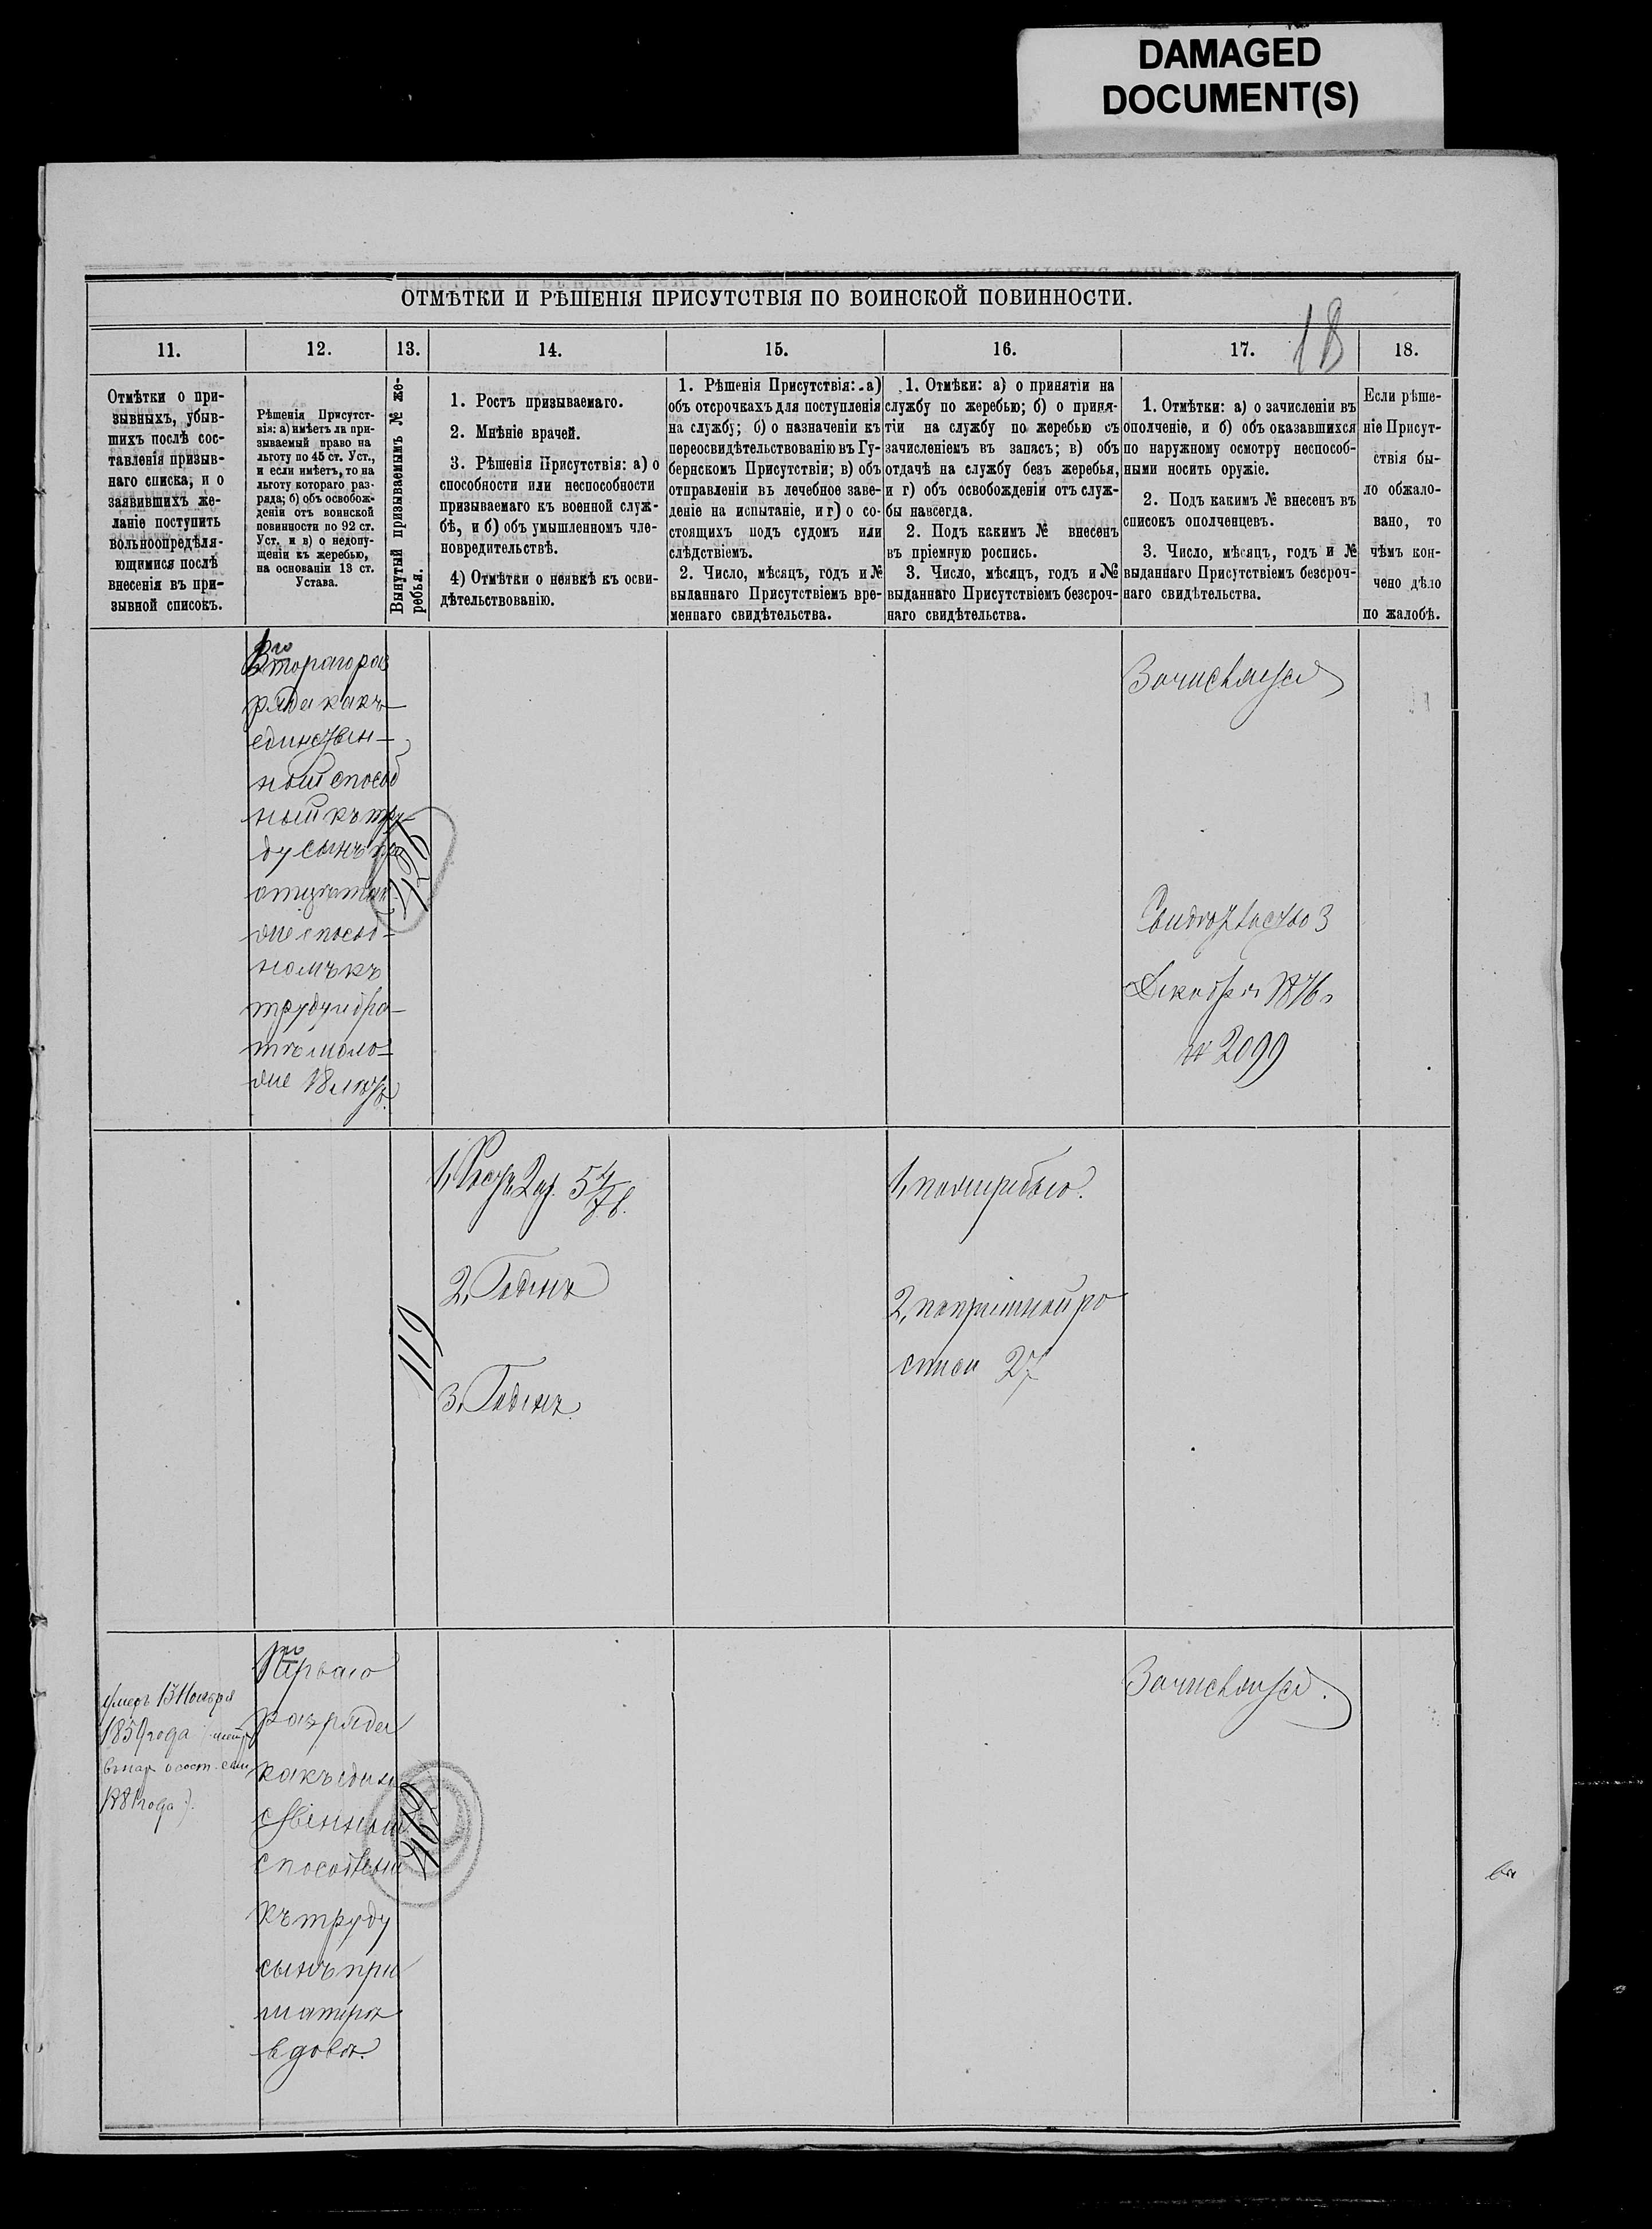 DAMAGED
DOCUMENT(S)
ОТМѢТКИ И РѢШЕНІЯ ПРИСУТСТВІЯ ПО ВОИНСКОЙ ПОВИННОСТИ.
18
11.
12.
13.
14.
15.
16.
17.
18.
Отмѣтки о при-
зывныхъ, убыв-
шихъ послѣ сос-
тавленія призыв-
наго списка, и о
заявившихъ же-
ланіе поступить
вольноопредѣля-
ющимися послѣ
внесенія въ при-
зывной списокъ.
Рѣшенія Присутст-
вія: а) имѣетъ ли при-
зываемый право на
льготу по 45 ст. Уст.,
и если имѣетъ, то на
льготу котораго раз-
ряда; б) объ освобож-
деніи отъ воинской
повинности по 92 ст.
Уст. и в) о недопу-
щеніи къ жеребью,
на основаніи 13 ст.
Устава.
Вынутый призываемымъ № же-
ребья.
1. Ростъ призываемаго.
2. Мнѣніе врачей.
3. Рѣшенія Присутствія: а) о
способности или неспособности
призываемаго къ военной служ-
бѣ, и б) объ умышленномъ чле-
новредительствѣ.
4) Отмѣтки о неявкѣ къ осви-
дѣтельствованію.
1. Рѣшенія Присутствія: а)
объ отсрочкахъ для поступленія
на службу; б) о назначеніи къ
переосвидѣтельствованію въ Гу-
бернскомъ Присутствіи; в) объ
отправленіи въ лечебное заве-
деніе на испытаніе, и г) о со-
стоящихъ подъ судомъ или
слѣдствіемъ.
2. Число, мѣсяцъ, годъ и №
выданнаго Присутствіемъ вре-
меннаго свидѣтельства.
1. Отмѣки: а) о принятіи на
службу по жеребью; б) о приня-
тіи на службу по жеребью съ
зачисленіемъ въ запасъ; в) объ
отдачѣ на службу безъ жеребья,
и г) объ освобожденіи отъ служ-
бы навсегда.
2. Подъ какимъ № внесенъ
въ пріемную роспись.
3. Число, мѣсяцъ, годъ и №
выданнаго Присутствіемъ безсроч-
наго свидѣтельства.
1. Отмѣтки: а) о зачисленіи въ
ополченіе, и б) объ оказавшихся
по наружному осмотру неспособ-
ными носить оружіе.
2. Подъ какимъ № внесенъ въ
списокъ ополченцевъ.
3. Число, мѣсяцъ, годъ и №
выданнаго Присутствіемъ безсроч-
наго свидѣтельства.
Если рѣше-
ніе Присут-
ствія бы-
ло обжало-
вано, то
чѣмъ кон-
чено дѣло
по жалобѣ.
Втораго раз
ряда какъ
единствен-
ный способ
ный къ тру-
ду сынъ при
отцѣ
не способ-
номъ къ
труду и бра-
тѣ моло-
же 18 лѣтъ.
Зачисляется
Свидѣтельство 3
Декабря 1876
№ 2099
119
1, Ростъ 2 ар. 5 4/8 в.
2, Годенъ
3, Годенъ
1, по жеребью.
2, по пріемной ро
списи 27
умеръ 13 Ноября
1881 года).
Перваго
разряда
какъ един
ственный
способный
къ труду
сынъ при
матери
вдовѣ.
Зачисляется.